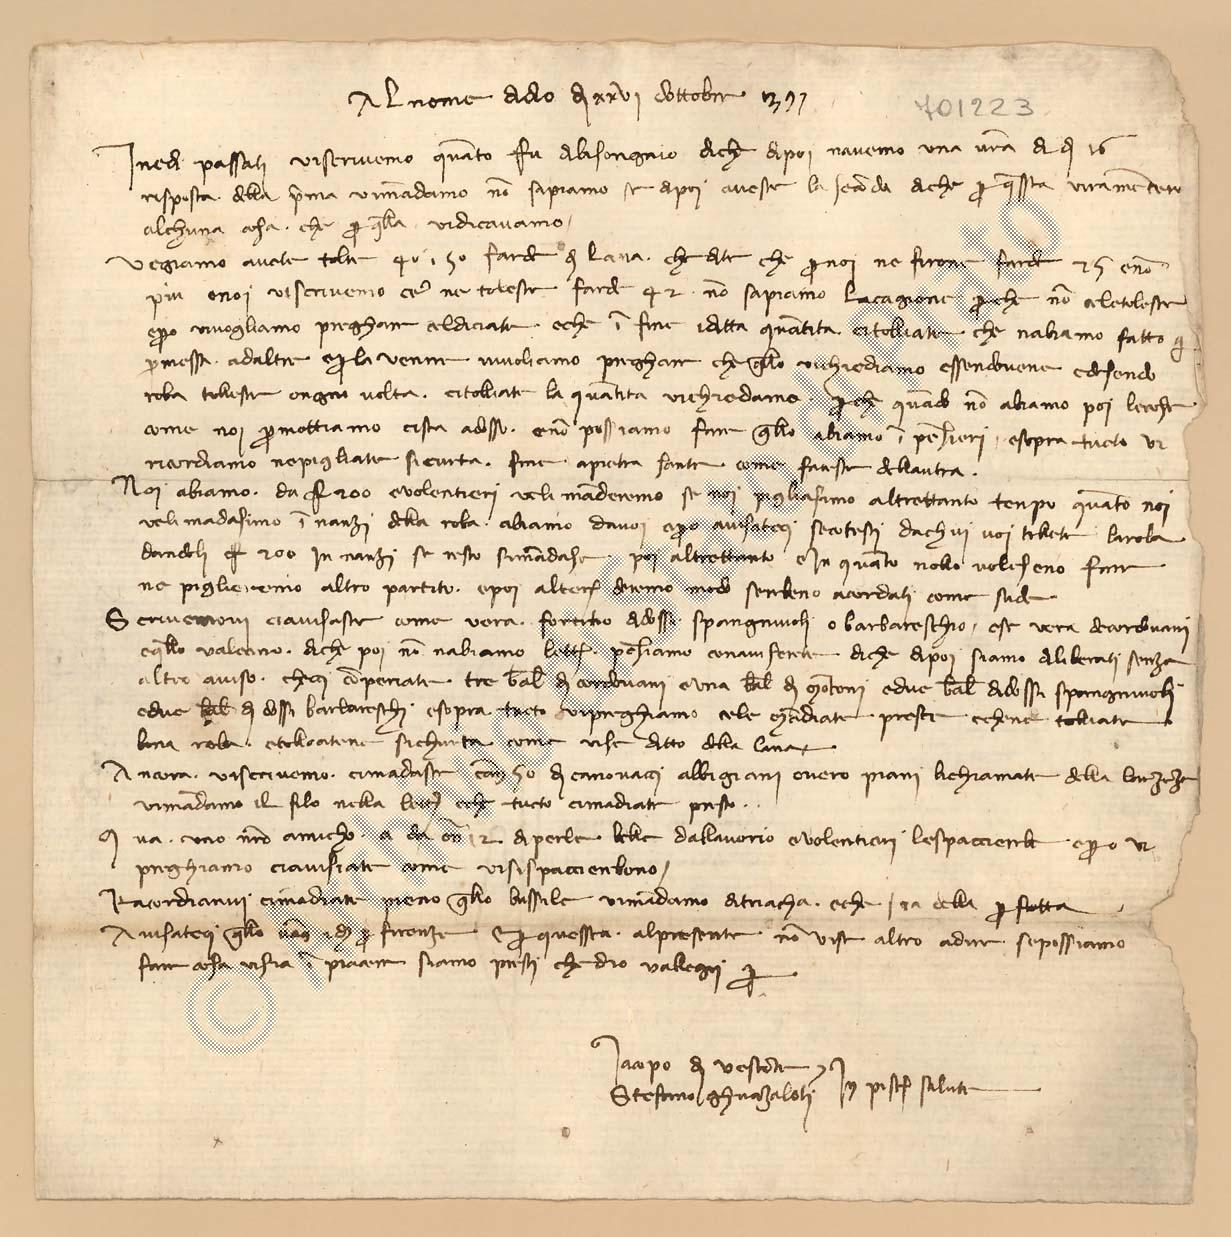 Al nome di dio di xxvi dottobre 1397
701223
In edi passati vi scrivemo quanto fu di bisongnio di che dipoi navemo una vostra di di 16
risposta della prima vi mandamo non sapiamo se dipoi aveste la seconda di che per questa
alchuna chosa che per quella vi dicavamo
Vegiamo avete tolte 40 i 50 farde di lana che dite che per noi ne sirone farde 25 enon
piu e noi vi scrivemo ce ne toleste farde 42 non sapiamo la cagione perche non celetoleste
epero vi vogliamo preghare cel diciate e che in fine i detta quantita ci tolliate che nabiamo fatto
promessa ad altre e per la venire vi voliamo preghare che quello vi chiediamo essendovene ed esendo
roba tolleste ongni volta ci tolliate la quantita vi chiedamo perche quando non abiamo poi le cose
come noi promettiamo ci sta adosso e non possiamo fare quello abiamo in pensieri e sopra tucto vi
ricordiamo ne pigliate sicurta fine a pietra sante come faceste dellautra
Noi abiamo da f 200 e volentieri veli manderemo se noi pigliasimo altrettanto tenpo quanto noi
veli madasimo in nanzi della roba abiamo davoi epero avisateci se cotesti da chui voi tolete la roba
dandoli f 200 in nanzi se resto simandase poi altrettanto e in quanto nollo volesono fare
ne piglieremo altro partito e poi altresi daremo modo serebeno acordati come si de
Scrivemovi ci avisaste come vera fornito adossi spangniuoli o barbareschio e se vera di cordovani
e quello valeano di che poi non nabiamo pensiamo con avisento di che dipoi siamo diliberati senza
altro aviso che ci conperiate tre bal di cordovani e una bal di montoni e due bal didossi spangniuoli
e due bal di dossi barbareschi e sopra tucto vi preghiamo cele mandiate presto e che ne tolliate
bona roba e tolloatene sichurta come vise ditto della lana
Ancora vi scrivemo ci madaste 50 di canovacci albigiani overo piani li chiamate della
vi mandamo il filo nella e che tucto ci madiate presto
Qua uno nostro amicho a da 12 di perle belle dallavorio e volentieri le spaccierebbe epero vi
preghiamo ci avisiate come vi si spaccierebono
Racordianvi ci mandiate pieno quello bussile vi mandamo di triacha e che sia della perfetta
Avisateci quello per firenze e per questa al presente non vise altro a dire se possiamo
fare cosa vi sia in piacere siamo presti che dio vallegri
Iacopo di vestro
Stefano ghuazaloti In pisa salute